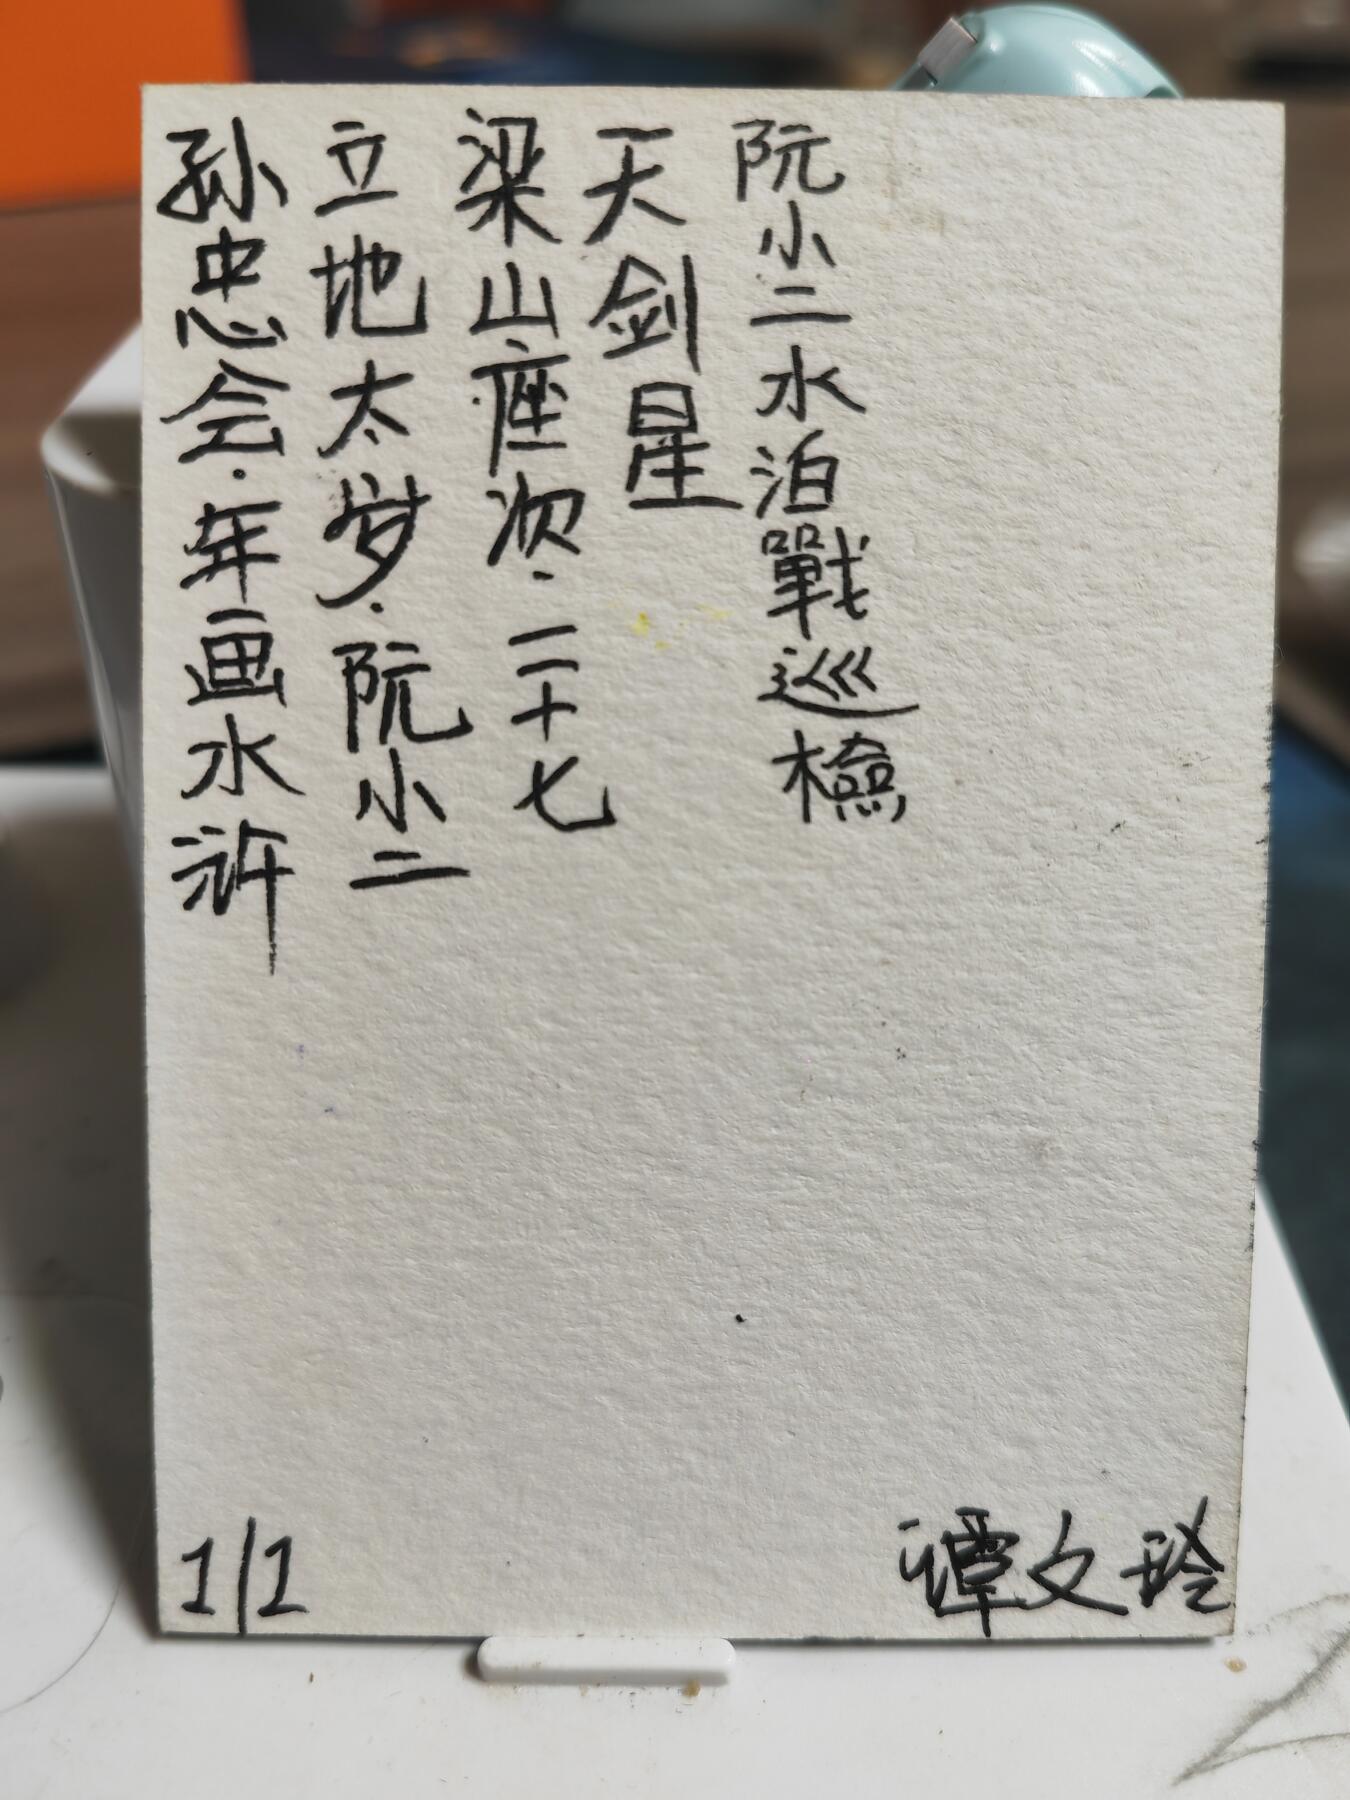 孙忠会·年画水浒
立地太岁·阮小二
梁山座次·二十七
天剑星
阮小二水泊戰巡檢
1/1
谭文玲